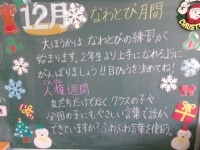 12月 なわとび月間
大ほうかは、なわとびの練習が
始まります。2年生より上手になれるように
がんばりましょう!!目ひょうを決めてね!
人権週間
友だちだけでなく、クラスの子や
全国の子にもやさしい言葉で話が
できていますか?ふわふわ言葉を使おう。